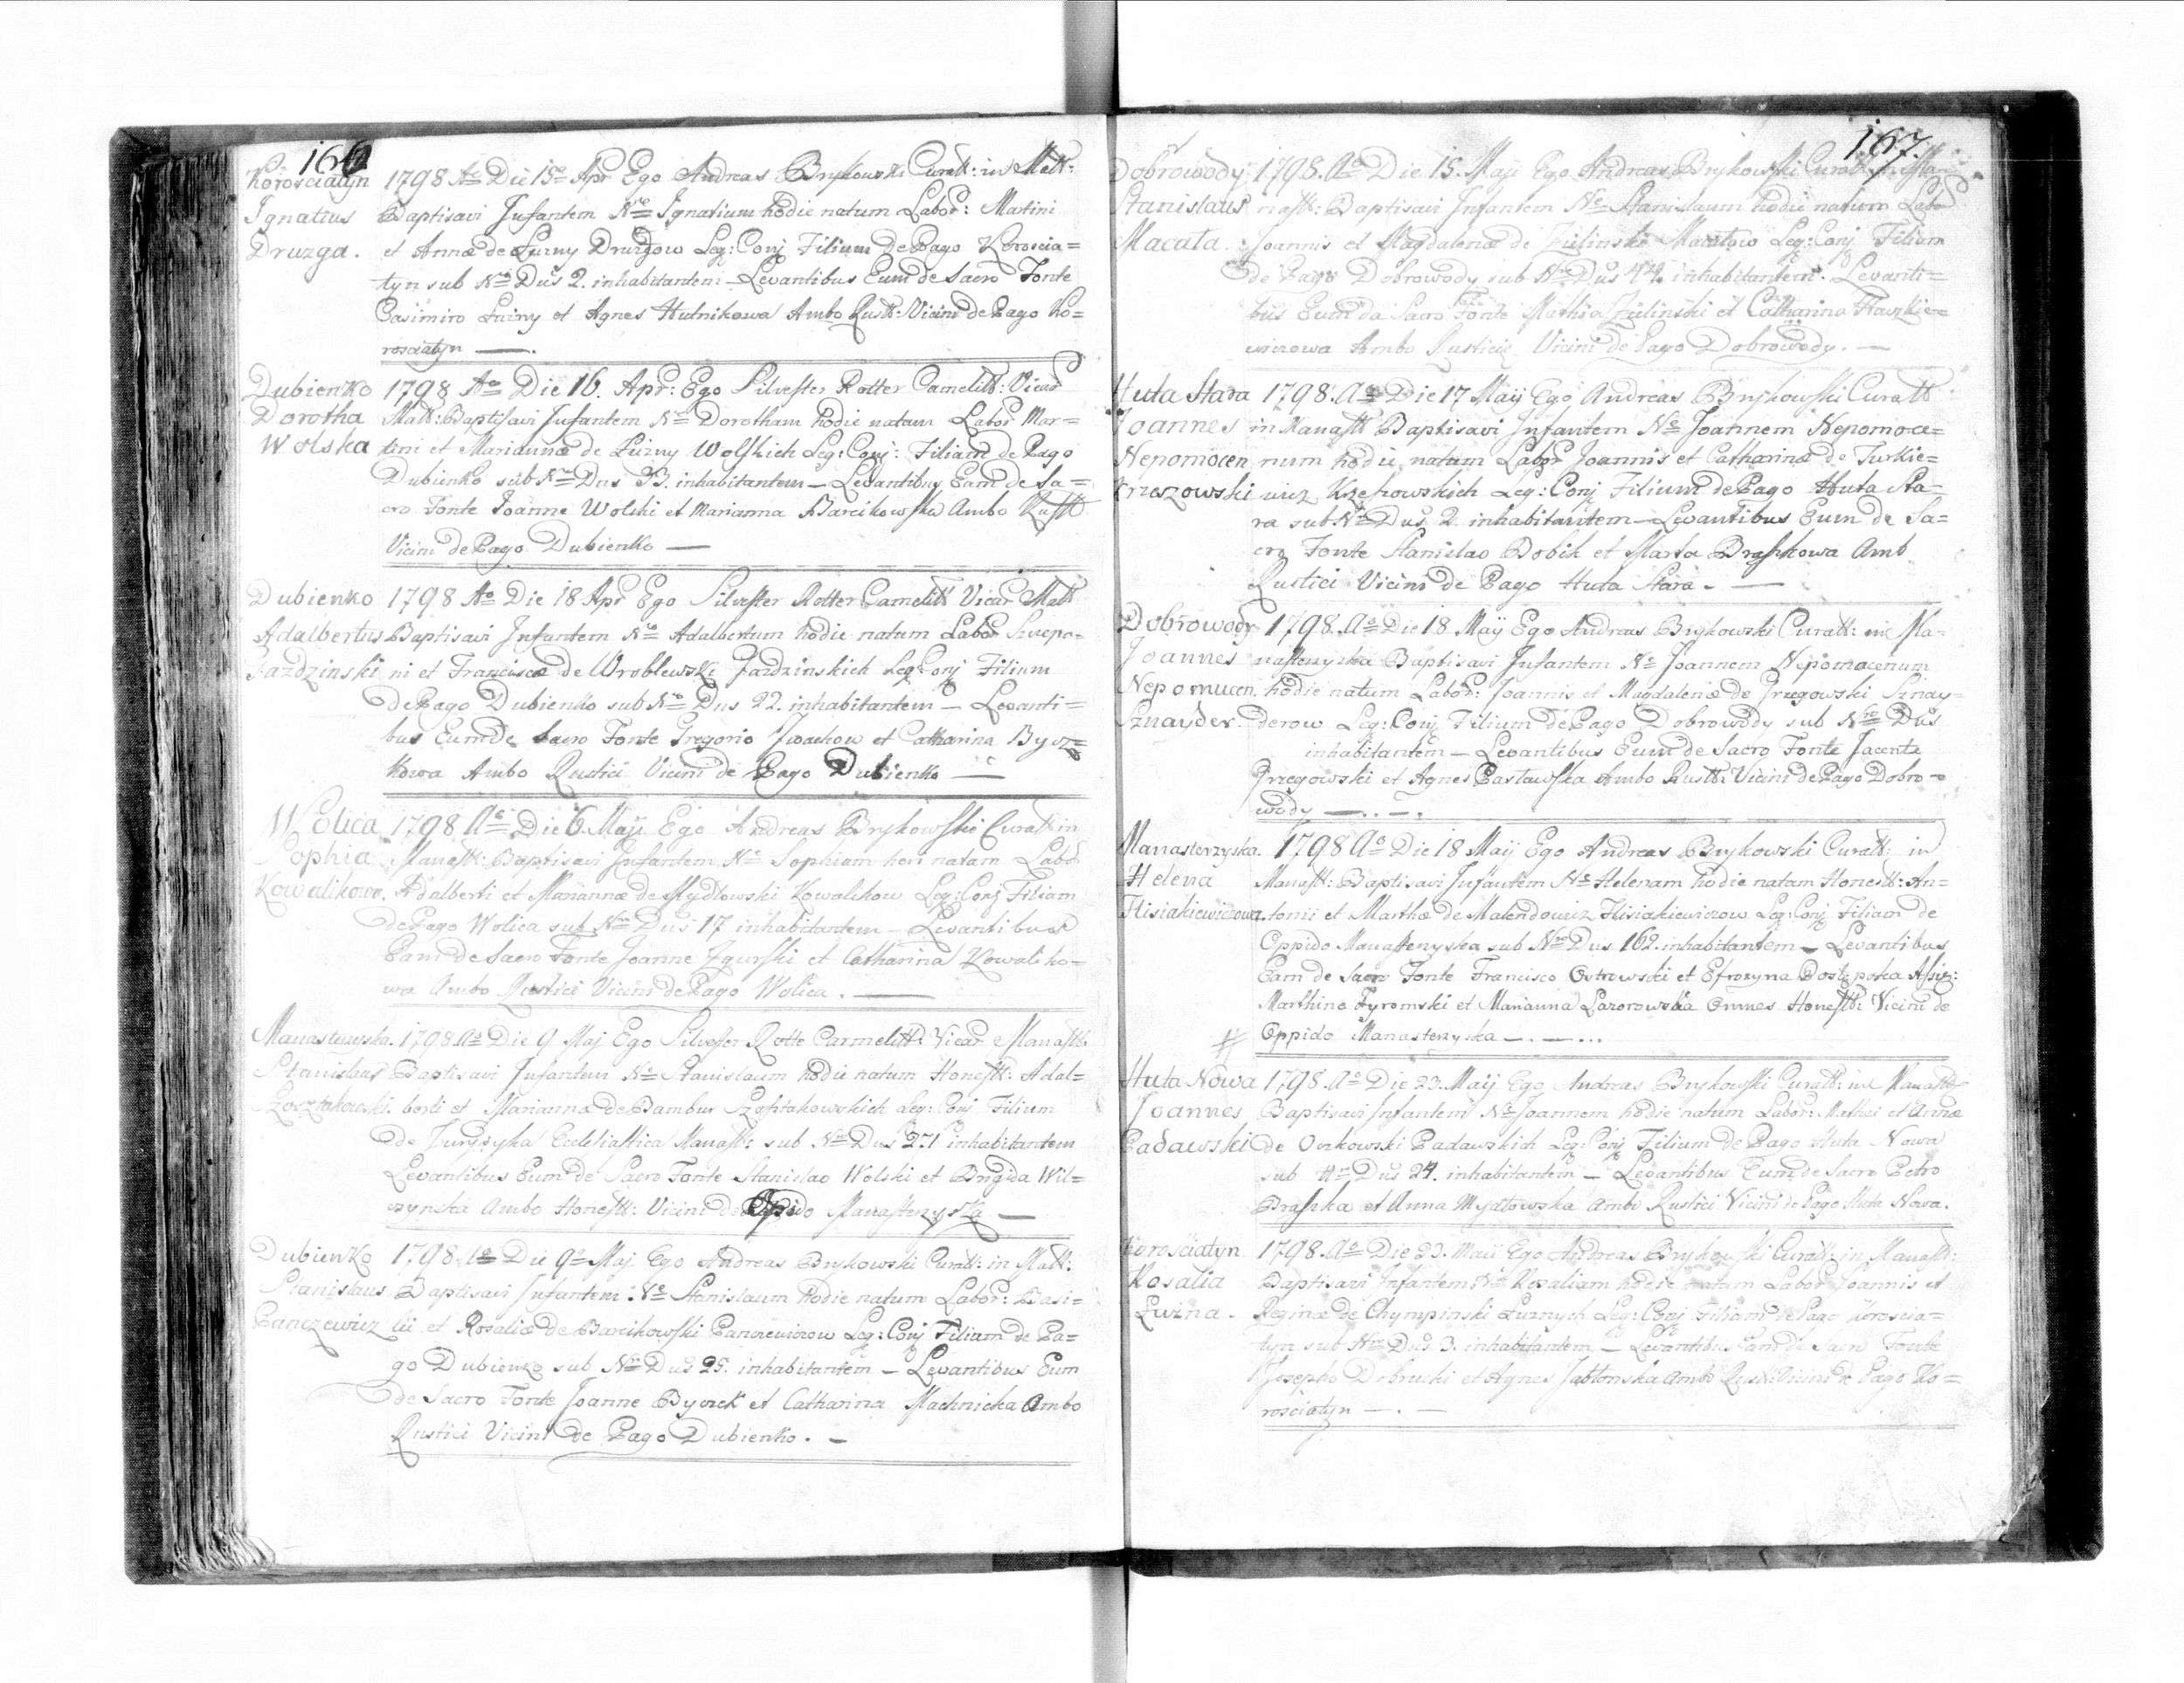 166
Korosciatyn 1798 Ao Die 15 Apr Ego Andreas Brykowski Curatt: in
Ignatius Baptisavi Infantem Nre Ignatium hodie natum Labor: Martini
Druzga. et Annæ de Luzny Druzgow Leg: Conj Filium de Pago Koroscia=
tyn sub Nro Dus 2. inhabitantem _ Levantibus Eum de Sacro Fonte
Casimiro Luzny et Agnes Hutnikowa Ambo Rustt: Vicini de Pago Ko=
rosciatyn —.
Dubienko 1798 Ao Die 16. Apr: Ego Silvester Rotter Camelitt: Vicar
Dorotha Matt: Baptisavi Infantem Nre Dorotham hodie natam Labor Mar=
Wolska tini et Mariannæ de Luzny Wolskich Leg: Conj: Filiam de Pago
Dubienko sub Nro Dus 33. inhabitantem — Levantibus Eam de Sa=
cro Fonte Joanne Wolski et Marianna Barcikowska Ambo Rustt
Vicini de Pago Dubienko —
Dubienko 1798 Ao Die 18 Apr Ego Silvester Rotter Camelitt Vicar Matt
Adalbertus Baptisavi Infantem Nre Adalbertum hodie natum Labor Szczepa=
Jazdzinski ni et Franciscæ de Wroblewski Jazdzinskich Leg: Conj Filium
de Pago Dubienko sub Nro Dus 22. inhabitantem — Levanti=
bus Eum de Sacro Fonte Gregorio Iwachow et Catharina Bycz=
kowa Ambo Rustici Vicini de Pago Dubienko —
Wolica 1798 Ao Die 6. Maji Ego Andreas Brykowski Curatt in
Sophia Manastt: Baptisavi Infantem Nre Sophiam heri natam Labor
Kowalikowa. Adalberti et Mariannæ de Mydlowski Kowalikow Leg: Conj Filiam
de Pago Wolica sub Nro Dus 17 inhabitantem — Levantibus
Eam de Sacro Fonte Joanne Zgurski et Catharina Kowaliko=
wa Ambo Rustici Vicini de Pago Wolica. —
Manasterzyska. 1798. Ao Die 9 Maj Ego Silvester Rotte Carmelitt: Vicar Manastt:
Stanislaus Baptisavi Infantem Nre Stanislaum hodie natum Honestt: Adal=
Szosztakowski. berti et Mariannæ de Bambur Szosztakowskich Leg: Conj Filium
de Jurysyka Ecclesiastica Manastt: sub Nro Dus 271 inhabitantem
Levantibus Eum de Sacro Fonte Stanislao Wolski et Brigida Wil=
czynska Ambo Honestt: Vicini de Oppido Manasterzyska —
Dubienko 1798. Ao Die 9 Maj Ego Andreas Brykowski Curatt: in Matt:
Stanislaus Baptisavi Infantem Nre Stanislaum hodie natum Labor: Basi=
Panczewicz lii et Rosaliæ de Barcikowski Panczewiczow Leg: Conj Filium de Pa=
go Dubienko sub Nro Dus 25. inhabitantem — Levantibus Eum
de Sacro Fonte Joanne Byczek et Catharina Machnicka Ambo
Rustici Vicini de Pago Dubienko. —
167.
Dobrowody 1798. Ao Die 15. Maji Ego Andreas Brykowski Curatt:
Stanislaus nastt: Baptisavi Infantem Nre Stanislaum hodie natum Labor
Macata. Joannis et Magdalenæ de Zielinski Macatow Leg: Conj Filium
de Pago Dobrowody sub Nro Dus 44. inhabitantem. Levanti=
bus Eum de Sacro Fonte Mathia Zielinski et Catharina Stankie=
wiczowa Ambo Rusticis Vicini de Pago Dobrowody. —
Huta Stara 1798. Ao Die 17 Maij Ego Andreas Brykowski Curatt
Joannes in Manastt Baptisavi Infantem Nre Joannem Nepomoce=
Nepomocen num hodie natum Labor Joannis et Catharinæ de Turkie=
Krzeszowski wicz Krzeszowskich Leg: Conj Filium de Pago Huta Sta=
ra sub Nro Dus 2. inhabitantem — Levantibus Eum de Sa=
cro Fonte Stanislao Bobik et Marta Braszkowa Amb
Rustici Vicini de Pago Huta Stara. —
Dobrowody 1798. Ao Die 18 Maij Ego Andreas Brykowski Curatt: in Ma=
Joannes nasterzyska Baptisavi Infantem Nre Joannem Nepomocenum
Nepomucen. hodie natum Labor: Joannis et Magdalenæ de Grzegowski Sznay=
Sznayder. derow Leg: Conj Filium de Pago Dobrowody sub Nro Dus
inhabitantem — Levantibus Eum de Sacro Fonte Jacente
Grzegowski et Agnes Pastawska Ambo Rustt: Vicini de Pago Dobro=
wody —..—.
Manasterzyska. 1798 Ao Die 18 Maij Ego Andreas Brykowski Curatt: in
Helena Manastt: Baptisavi Infantem Nre Helenam hodie natam Honestt: An=
Hisiakiewiczowa. tonii et Marthæ de Malendowicz Hisiakiewiczow Leg: Conj Filiam de
Oppido Manasterzyska sub Nro Dus 162. inhabitantem — Levantibus
Eam de Sacro Fonte Francisco Ostrowski et Efrozyna Dostępska Assis:
Marthino Fyromski et Marianna Lazorowska Omnes Honestt: Vicini de
# Oppido Manasterzyska —.—...
Huta Nowa 1798. Ao Die 23. Maij Ego Andreas Brykowski Curatt: in Manastt
Joannes Baptisavi Infantem Nre Joannem hodie natum Labor: Mathei et Annæ
Padawski de Oczkowski Padawskich Leg: Conj Filium de Pago Huta Nowa
sub Nro Dus 24. inhabitantem — Levantibus Eum de Sacro Petro
Braszka et Anna Mydlowska Ambo Rustici Vicini de Pago Huta Nowa.
Korosciatyn 1798. Ao Die 23. Maij Ego Andreas Brykowski Curatt: in Manastt:
Rosalia Baptisavi Infantem Nre Rosaliam hodie natam Labor Joannis et
Luzna. Reginæ de Chympinski Luznych Leg: Conj Filiam de Pago Koroscia=
tyn sub Nro Dus 3. inhabitantem — Levantibus Eam de Sacro Fonte
Josepho Dobrucki et Agnes Jabłonska Ambo Rustt: Vicini de Pago Ko=
rosciatyn —.—